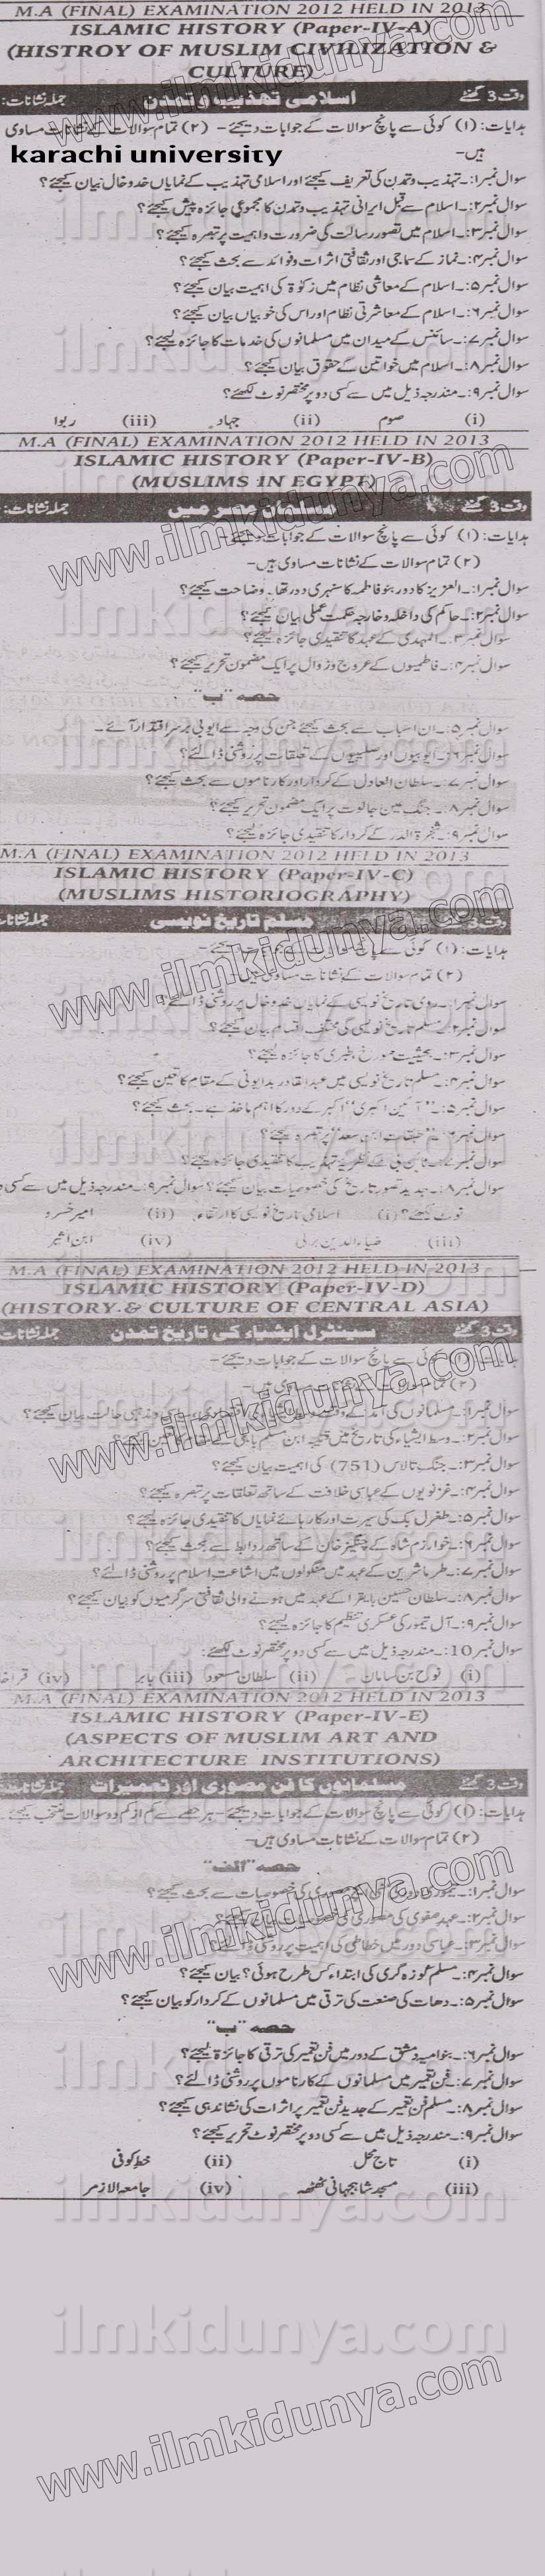 M.A (FINAL) EXAMINATION 2012 HELD IN 2013
ISLAMIC HISTORY (Paper-IV-A)
(HISTROY OF MUSLIM CIVILIZATION &
CULTURE)
وقت 3 گھنٹے اسلامی تہذیب و تمدن جملہ نشانات:
ہدایات: (۱) کوئی سے پانچ سوالات کے جوابات دیجئے - (۲) تمام سوالات کے نشانات مساوی
ہیں-
karachi university
سوال نمبر۱:۔ تہذیب و تمدن کی تعریف کیجئے اور اسلامی تہذیب کے نمایاں خدوخال بیان کیجئے؟
سوال نمبر۲:۔ اسلام سے قبل ایرانی تہذیب و تمدن کا مجموعی جائزہ پیش کیجئے؟
سوال نمبر۳:۔ اسلام میں تصور رسالت کی ضرورت و اہمیت پر تبصرہ کیجئے؟
سوال نمبر۴:۔ نماز کے سماجی اور ثقافتی اثرات و فوائد سے بحث کیجئے؟
سوال نمبر۵:۔ اسلام کے معاشی نظام میں زکوٰۃ کی اہمیت بیان کیجئے؟
سوال نمبر۶:۔ اسلام کے معاشرتی نظام اور اس کی خوبیاں بیان کیجئے؟
سوال نمبر۷:۔ سائنس کے میدان میں مسلمانوں کی خدمات کا جائزہ لیجئے؟
سوال نمبر۸:۔ اسلام میں خواتین کے حقوق بیان کیجئے؟
سوال نمبر۹:۔ مندرجہ ذیل میں سے کسی دو پر مختصر نوٹ لکھئے؟
(i) صوم (ii) جہاد (iii) ربوا
M.A (FINAL) EXAMINATION 2012 HELD IN 2013
ISLAMIC HISTORY (Paper-IV-B)
(MUSLIMS IN EGYPT)
وقت 3 گھنٹے مسلمان مصر میں جملہ نشانات:
ہدایات: (۱) کوئی سے پانچ سوالات کے جوابات دیجئے-
(۲) تمام سوالات کے نشانات مساوی ہیں-
سوال نمبر۱:۔ العزیز کا دور بنو فاطمہ کا سنہری دور تھا۔ وضاحت کیجئے؟
سوال نمبر۲:۔ حاکم کی داخلہ و خارجہ حکمت عملی بیان کیجئے؟
سوال نمبر۳:۔ المہدی کے عہد کا تنقیدی جائزہ لیجئے؟
سوال نمبر۴:۔ فاطمیوں کے عروج و زوال پر ایک مضمون تحریر کیجئے؟
حصہ "ب"
سوال نمبر۵:۔ ان اسباب سے بحث کیجئے جن کی وجہ سے ایوبی برسر اقتدار آئے۔
سوال نمبر۶:۔ ایوبیوں اور صلیبیوں کے تعلقات پر روشنی ڈالئے؟
سوال نمبر۷:۔ سلطان العادل کے کردار اور کارناموں سے بحث کیجئے؟
سوال نمبر۸:۔ جنگ عین جالوت پر ایک مضمون تحریر کیجئے؟
سوال نمبر۹:۔ شجرۃ الدر کے کردار کا تنقیدی جائزہ لیجئے؟
M.A (FINAL) EXAMINATION 2012 HELD IN 2013
ISLAMIC HISTORY (Paper-IV-C)
(MUSLIMS HISTORIOGRAPHY)
وقت 3 گھنٹے مسلم تاریخ نویسی جملہ نشانات
ہدایات: (۱) کوئی سے پانچ سوالات کے جوابات دیجئے-
(۲) تمام سوالات کے نشانات مساوی ہیں-
سوال نمبر۱:۔ رومی تاریخ نویسی کے نمایاں خدوخال پر روشنی ڈالئے؟
سوال نمبر۲:۔ مسلم تاریخ نویسی کی مختلف اقسام بیان کیجئے؟
سوال نمبر۳:۔ بحیثیت مورخ، طبری کا جائزہ لیجئے؟
سوال نمبر۴:۔ مسلم تاریخ نویسی میں عبدالقادر بدایونی کے مقام کا تعین کیجئے؟
سوال نمبر۵:۔ "آئین اکبری" اکبر کے دور کا اہم ماخذ ہے۔ بحث کیجئے؟
سوال نمبر۶:۔ "طبقات ابن سعد" پر تبصرہ کیجئے؟
سوال نمبر۷:۔ ٹائن بی کے نظریہ تہذیب کا تنقیدی جائزہ لیجئے؟
سوال نمبر۸:۔ جدید تصور تاریخ کی خصوصیات بیان کیجئے؟ سوال نمبر۹:۔ مندرجہ ذیل میں سے کسی
نوٹ لکھئے؟ (i) اسلامی تاریخ نویسی کا ارتقاء (ii) امیر خسرو
(iii) ضیاء الدین برنی (iv) ابن اثیر
M.A (FINAL) EXAMINATION 2012 HELD IN 2013
ISLAMIC HISTORY (Paper-IV-D)
(HISTORY & CULTURE OF CENTRAL ASIA)
وقت 3 گھنٹے سینٹرل ایشیاء کی تاریخ تمدن جملہ نشانات
ہدایات: (۱) کوئی سے پانچ سوالات کے جوابات دیجئے-
(۲) تمام سوالات کے نشانات مساوی ہیں-
سوال نمبر۱:۔ مسلمانوں کی آمد کے وقت وسط مذہبی حالت بیان کیجئے؟
سوال نمبر۲:۔ وسط ایشیاء کی تاریخ میں قتیبہ ابن مسلم باہلی کے
سوال نمبر۳:۔ جنگ تالاس (751) کی اہمیت بیان کیجئے؟
سوال نمبر۴:۔ غزنویوں کے عباسی خلافت کے ساتھ تعلقات پر تبصرہ کیجئے؟
سوال نمبر۵:۔ طغرل بک کی سیرت اور کارہائے نمایاں کا تنقیدی جائزہ لیجئے؟
سوال نمبر۶:۔ خوارزم شاہ کے چنگیز خان کے ساتھ روابط سے بحث کیجئے؟
سوال نمبر۷:۔ طرماشرین کے عہد میں منگولوں میں اشاعت اسلام پر روشنی ڈالئے؟
سوال نمبر۸:۔ سلطان حسین بایقرا کے عہد میں ہونے والی ثقافتی سرگرمیوں کو بیان کیجئے؟
سوال نمبر۹:۔ آل تیمور کی عسکری تنظیم کا جائزہ لیجئے؟
سوال نمبر10:۔ مندرجہ ذیل میں سے کسی دو پر مختصر نوٹ لکھئے:
(i) نوح بن سامان (ii) سلطان مسعود (iii) بابر (iv)
M.A (FINAL) EXAMINATION 2012 HELD IN 2013
ISLAMIC HISTORY (Paper-IV-E)
(ASPECTS OF MUSLIM ART AND
ARCHITECTURE INSTITUTIONS)
وقت 3 گھنٹے مسلمانوں کا فن مصوری اور تعمیرات جملہ نشانات
ہدایات: (۱) کوئی سے پانچ سوالات کے جوابات دیجئے- ہر حصے سے کم از کم دو سوالات منتخب کیجئے-
(۲) تمام سوالات کے نشانات مساوی ہیں-
حصہ "الف"
سوال نمبر۱:۔ تیموری دور کی مصوری کی خصوصیات سے بحث کیجئے؟
سوال نمبر۲:۔ عہد صفوی کی مصوری کی کیجئے؟
سوال نمبر۳:۔ عباسی دور میں خطاطی کی اہمیت پر روشنی ڈالئے؟
سوال نمبر۴:۔ مسلم کوزہ گری کی ابتداء کس طرح ہوئی؟ بیان کیجئے؟
سوال نمبر۵:۔ دھات کی صنعت کی ترقی میں مسلمانوں کے کردار کو بیان کیجئے؟
حصہ "ب"
سوال نمبر۶:۔ بنو امیہ دمشق کے دور میں فن تعمیر کی ترقی کا جائزہ لیجئے؟
سوال نمبر۷:۔ فن تعمیر میں مسلمانوں کے کارناموں پر روشنی ڈالئے؟
سوال نمبر۸:۔ مسلم فن تعمیر کے جدید فن تعمیر پر اثرات کی نشاندہی کیجئے؟
سوال نمبر۹:۔ مندرجہ ذیل میں سے کسی دو پر مختصر نوٹ تحریر کیجئے؟
(i) تاج محل (ii) خط کوفی
(iii) مسجد شاہجہانی ٹھٹھہ (iv) جامعہ الازہر
ilmkidunya.com
www.ilmkidunya.com